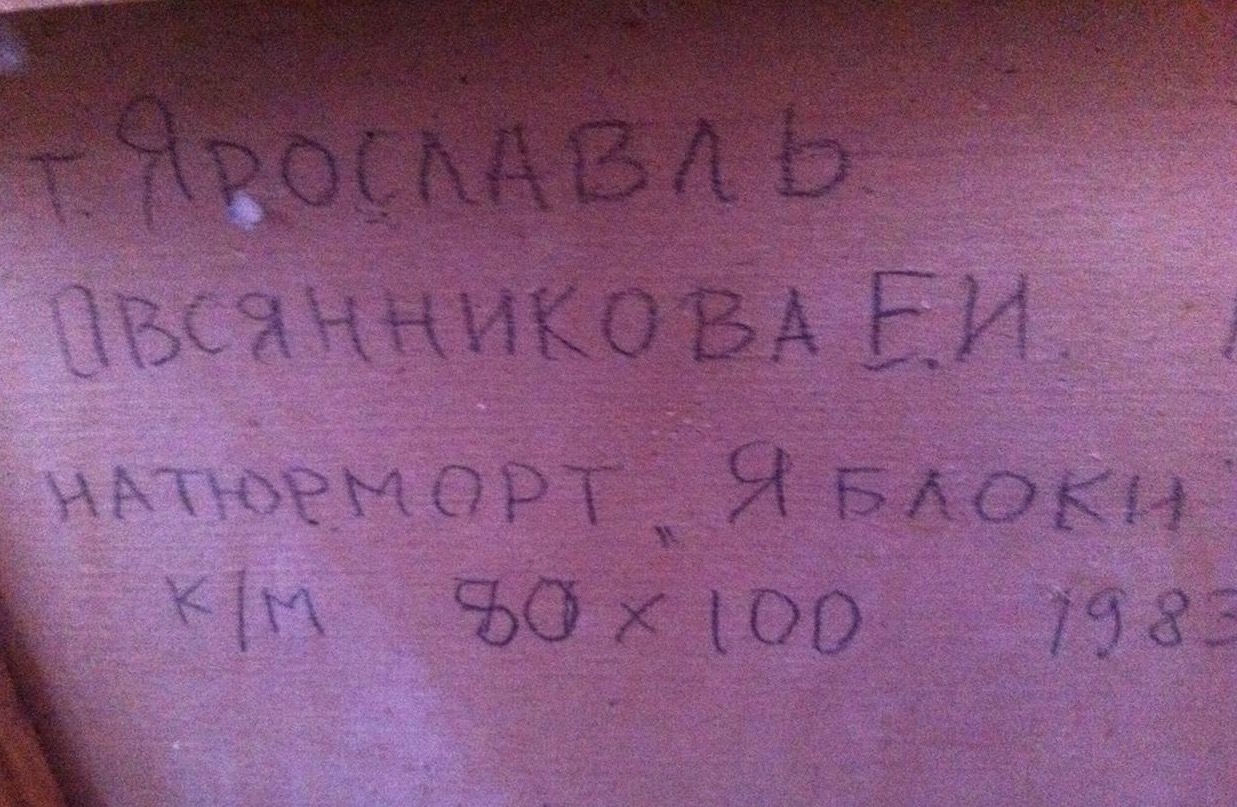 г. ЯРОСЛАВЛЬ.
ОВСЯННИКОВА Е.И.
НАТЮРМОРТ „ЯБЛОКИ"
К/М 80 х 100 1983